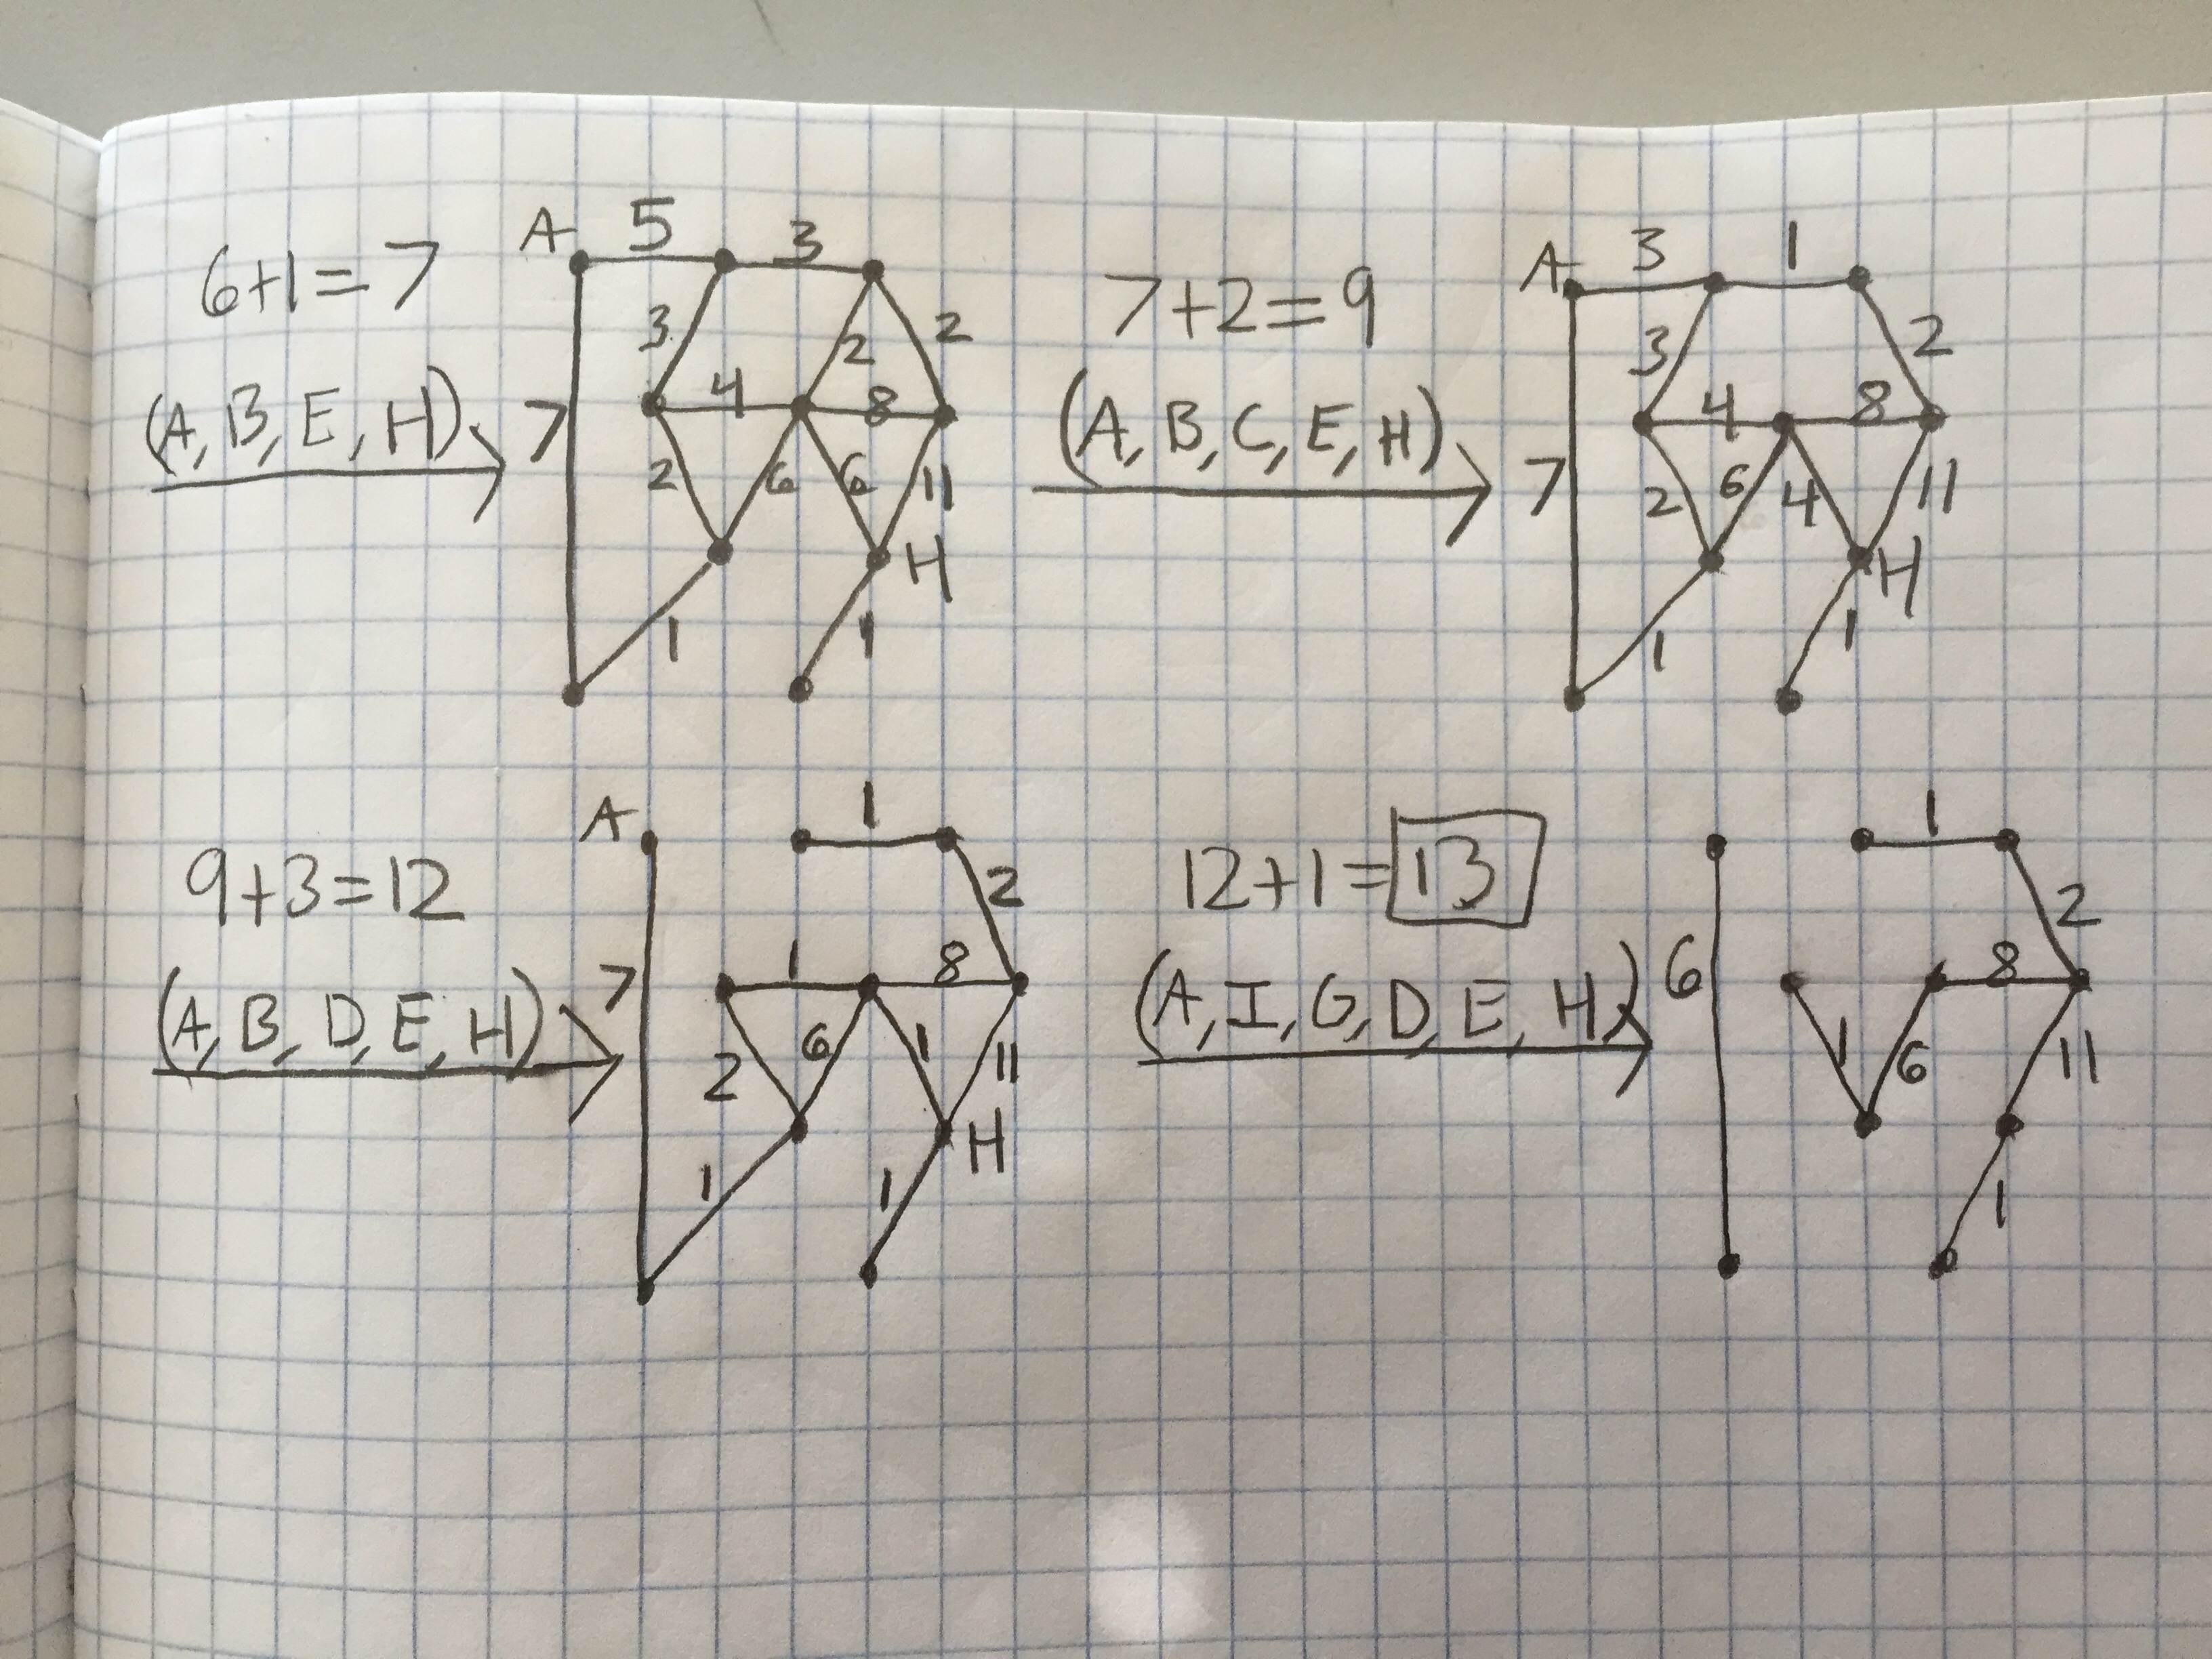 6+1=7
(A, B, E, H)
A 5 3
3 2 2
7 4 8
2 6 6 11
H
1 1
7+2=9
(A, B, C, E, H)
A 3 1
3 2
4 8
7 2 6 4 11
H
1 1
9+3=12
(A, B, D, E, H)
A 1
2
7 1 8
2 6 1 11
H
1 1
12+1=13
(A, I, G, D, E, H)
1
2
6 8
1 6 11
1